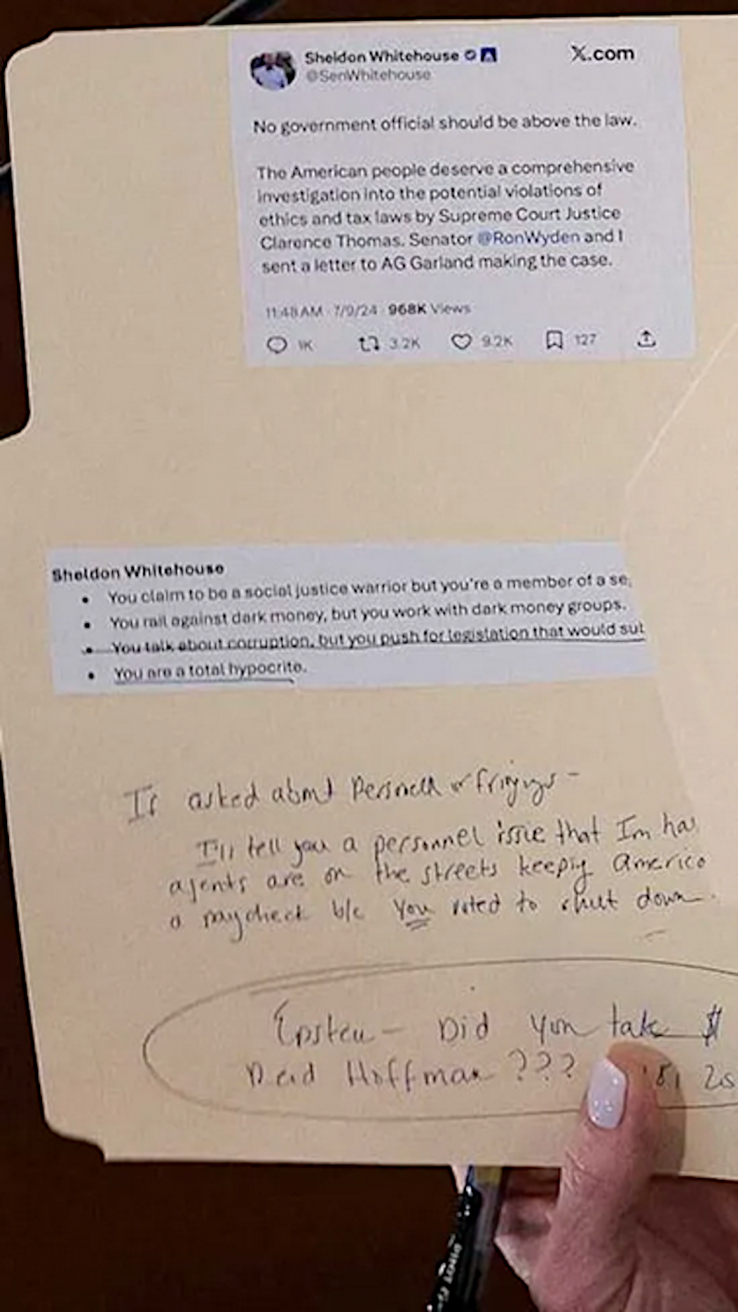 Sheldon Whitehouse
X.com
@SenWhitehouse
No government official should be above the law.
The American people deserve a comprehensive
investigation into the potential violations of
ethics and tax laws by Supreme Court Justice
Clarence Thomas. Senator @RonWyden and I
sent a letter to AG Garland making the case.
11:48 AM · 7/9/24 · 968K Views
1K 3.2K 9.2K 127
Sheldon Whitehouse
• You claim to be a social justice warrior but you're a member of a se
• You rail against dark money, but you work with dark money groups.
• You talk about corruption, but you push for legislation that would sub
• You are a total hypocrite.
If asked about Personnel or firings –
I'll tell you a personnel issue that Im ha
agents are on the streets keeping America
a paycheck b/c You voted to shut down.
Epstein – Did you take $
Reid Hoffman ??? '18, 20